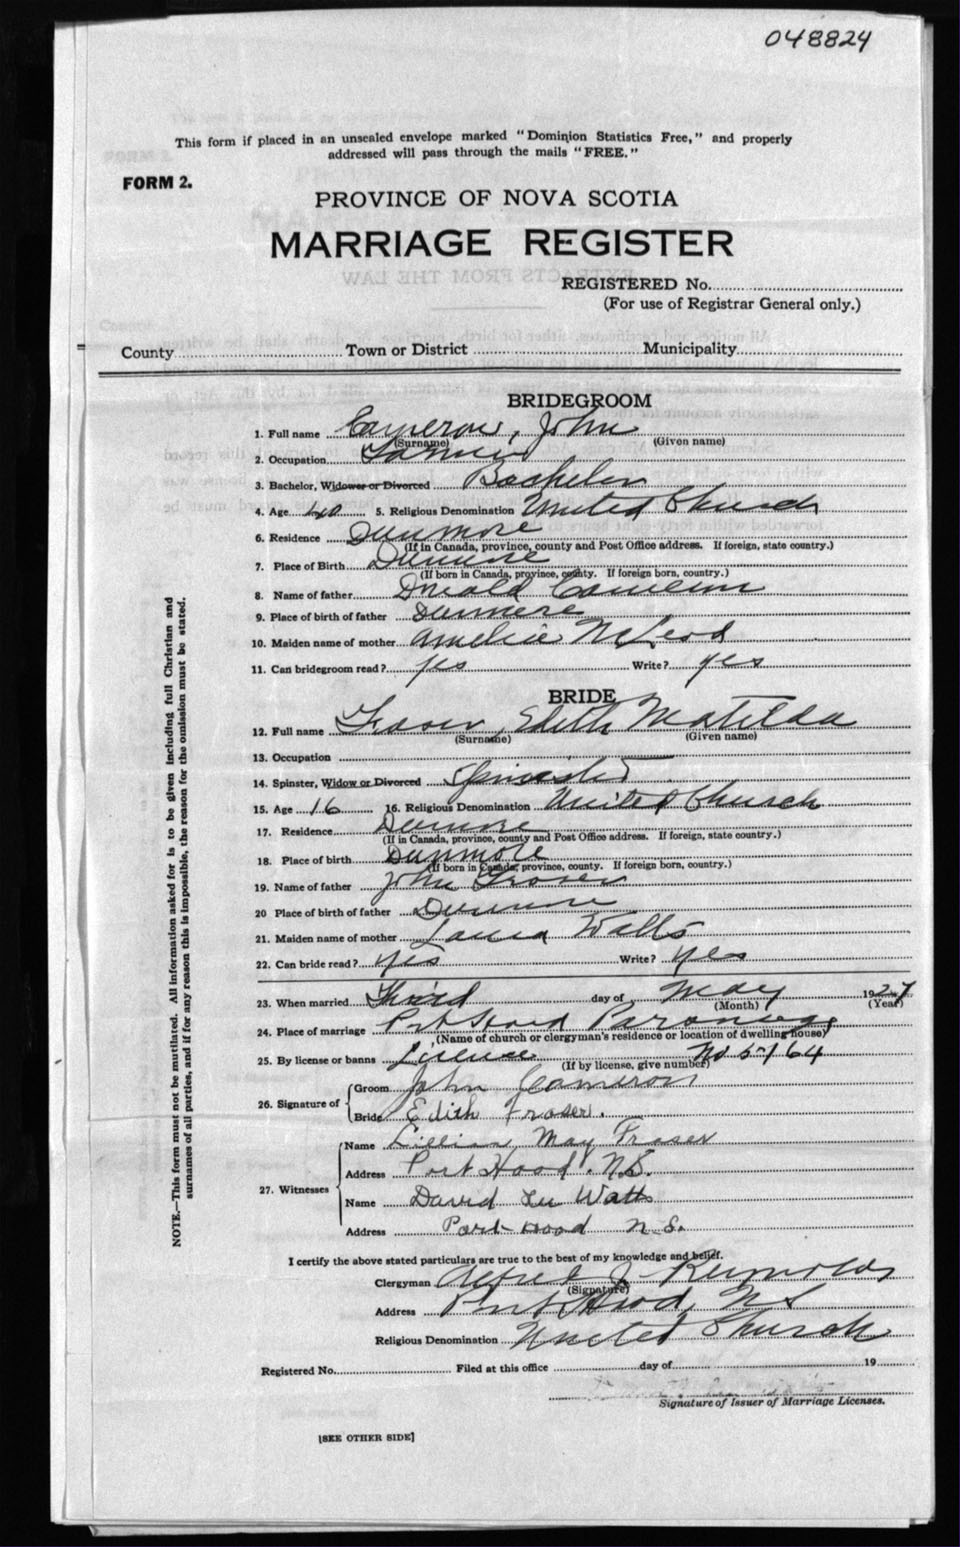 048824
This form if placed in an unsealed envelope marked "Dominion Statistics Free," and properly
addressed will pass through the mails "FREE."
FORM 2.
PROVINCE OF NOVA SCOTIA
MARRIAGE REGISTER
REGISTERED No.
(For use of Registrar General only.)
County Town or District Municipality
BRIDEGROOM
1. Full name Cameron, John
(Surname) (Given name)
2. Occupation Farmer
3. Bachelor, Widower or Divorced Bachelor
4. Age 40 5. Religious Denomination United Church
6. Residence Dunmore
(If in Canada, province, county and Post Office address. If foreign, state country.)
7. Place of Birth Dunmore
(If born in Canada, province, county. If foreign born, country.)
8. Name of father Donald Cameron
9. Place of birth of father Dunmore
10. Maiden name of mother Amelia McLeod
11. Can bridegroom read? yes Write? yes
BRIDE
12. Full name Fraser, Edith Matilda
(Surname) (Given name)
13. Occupation
14. Spinster, Widow or Divorced Spinster
15. Age 16 16. Religious Denomination United Church
17. Residence Dunmore
(If in Canada, province, county and Post Office address. If foreign, state country.)
18. Place of birth Dunmore
(If born in Canada, province, county. If foreign born, country.)
19. Name of father John Fraser
20 Place of birth of father Dunmore
21. Maiden name of mother Laura Watts
22. Can bride read? yes Write? yes
23. When married Third day of May 1927
(Month) (Year)
24. Place of marriage Port Hood Parsonage
(Name of church or clergyman's residence or location of dwelling house)
25. By license or banns License No 5764
(If by license, give number)
26. Signature of
Groom John Cameron
Bride Edith Fraser.
27. Witnesses
Name Lillian May Fraser
Address Port Hood. N.S.
Name David Watts
Address Port Hood N.S.
I certify the above stated particulars are true to the best of my knowledge and belief.
Clergyman Alfred J. Reynolds
(Signature)
Address Port Hood, N S
Religious Denomination United Church
Registered No. Filed at this office day of 19
Signature of Issuer of Marriage Licenses.
[SEE OTHER SIDE]
NOTE.—This form must not be mutilated. All information asked for is to be given including full Christian and
surnames of all parties, and if for any reason this is impossible, the reason for the omission must be stated.